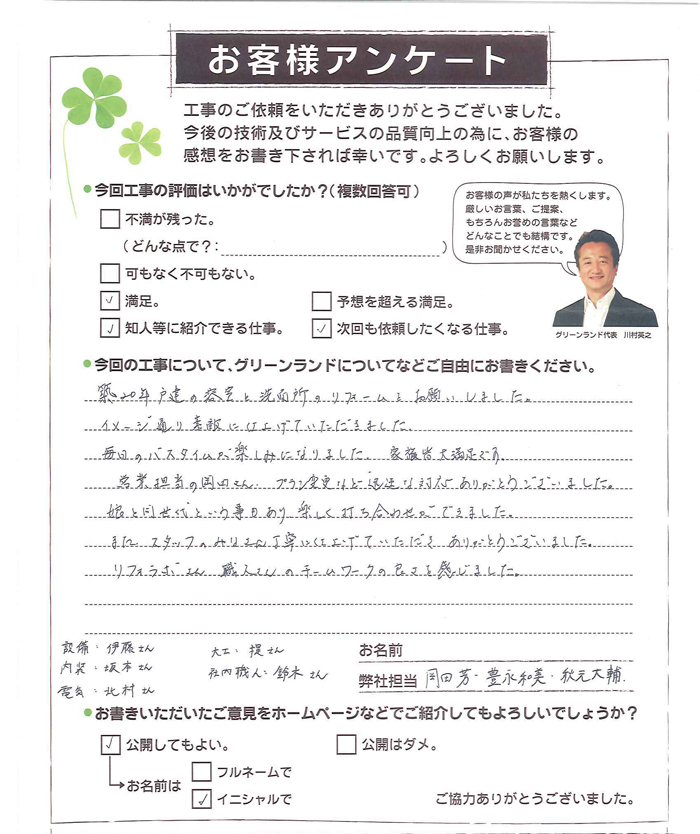 お客様アンケート
工事のご依頼をいただきありがとうございました。
今後の技術及びサービスの品質向上の為に、お客様の
感想をお書き下されば幸いです。よろしくお願いします。
●今回工事の評価はいかがでしたか？（複数回答可）
□不満が残った。
（どんな点で？：　　　　）
□可もなく不可もない。
☑満足。　□予想を超える満足。
☑知人等に紹介できる仕事。　☑次回も依頼したくなる仕事。
お客様の声が私たちを熱くします。
厳しいお言葉、ご提案、
もちろんお誉めの言葉など
どんなことでも結構です。
是非お聞かせください。
グリーンランド代表　川村英之
●今回の工事について、グリーンランドについてなどご自由にお書きください。
築20年戸建の浴室と洗面所のリフォームをお願いしました。
イメージ通り素敵に仕上げていただきました。
毎日のバスタイムが楽しみになりました。家族皆大満足です。
営業担当の岡田さん、プラン変更など迅速な対応ありがとうございました。
娘と同世代という事もあり楽しく打ち合わせができました。
また、スタッフのみなさん丁寧に仕上げていただき ありがとうございました。
リフォラボさん 職人さんのチームワークの良さを感じました。
設備：伊藤さん　大工：堤さん
内装：坂本さん　社内職人：鈴木さん
電気：北村さん
お名前
弊社担当 岡田芳・豊永和美・秋元大輔.
●お書きいただいたご意見をホームページなどでご紹介してもよろしいでしょうか？
☑公開してもよい。　□公開はダメ。
→お名前は □フルネームで
☑イニシャルで
ご協力ありがとうございました。